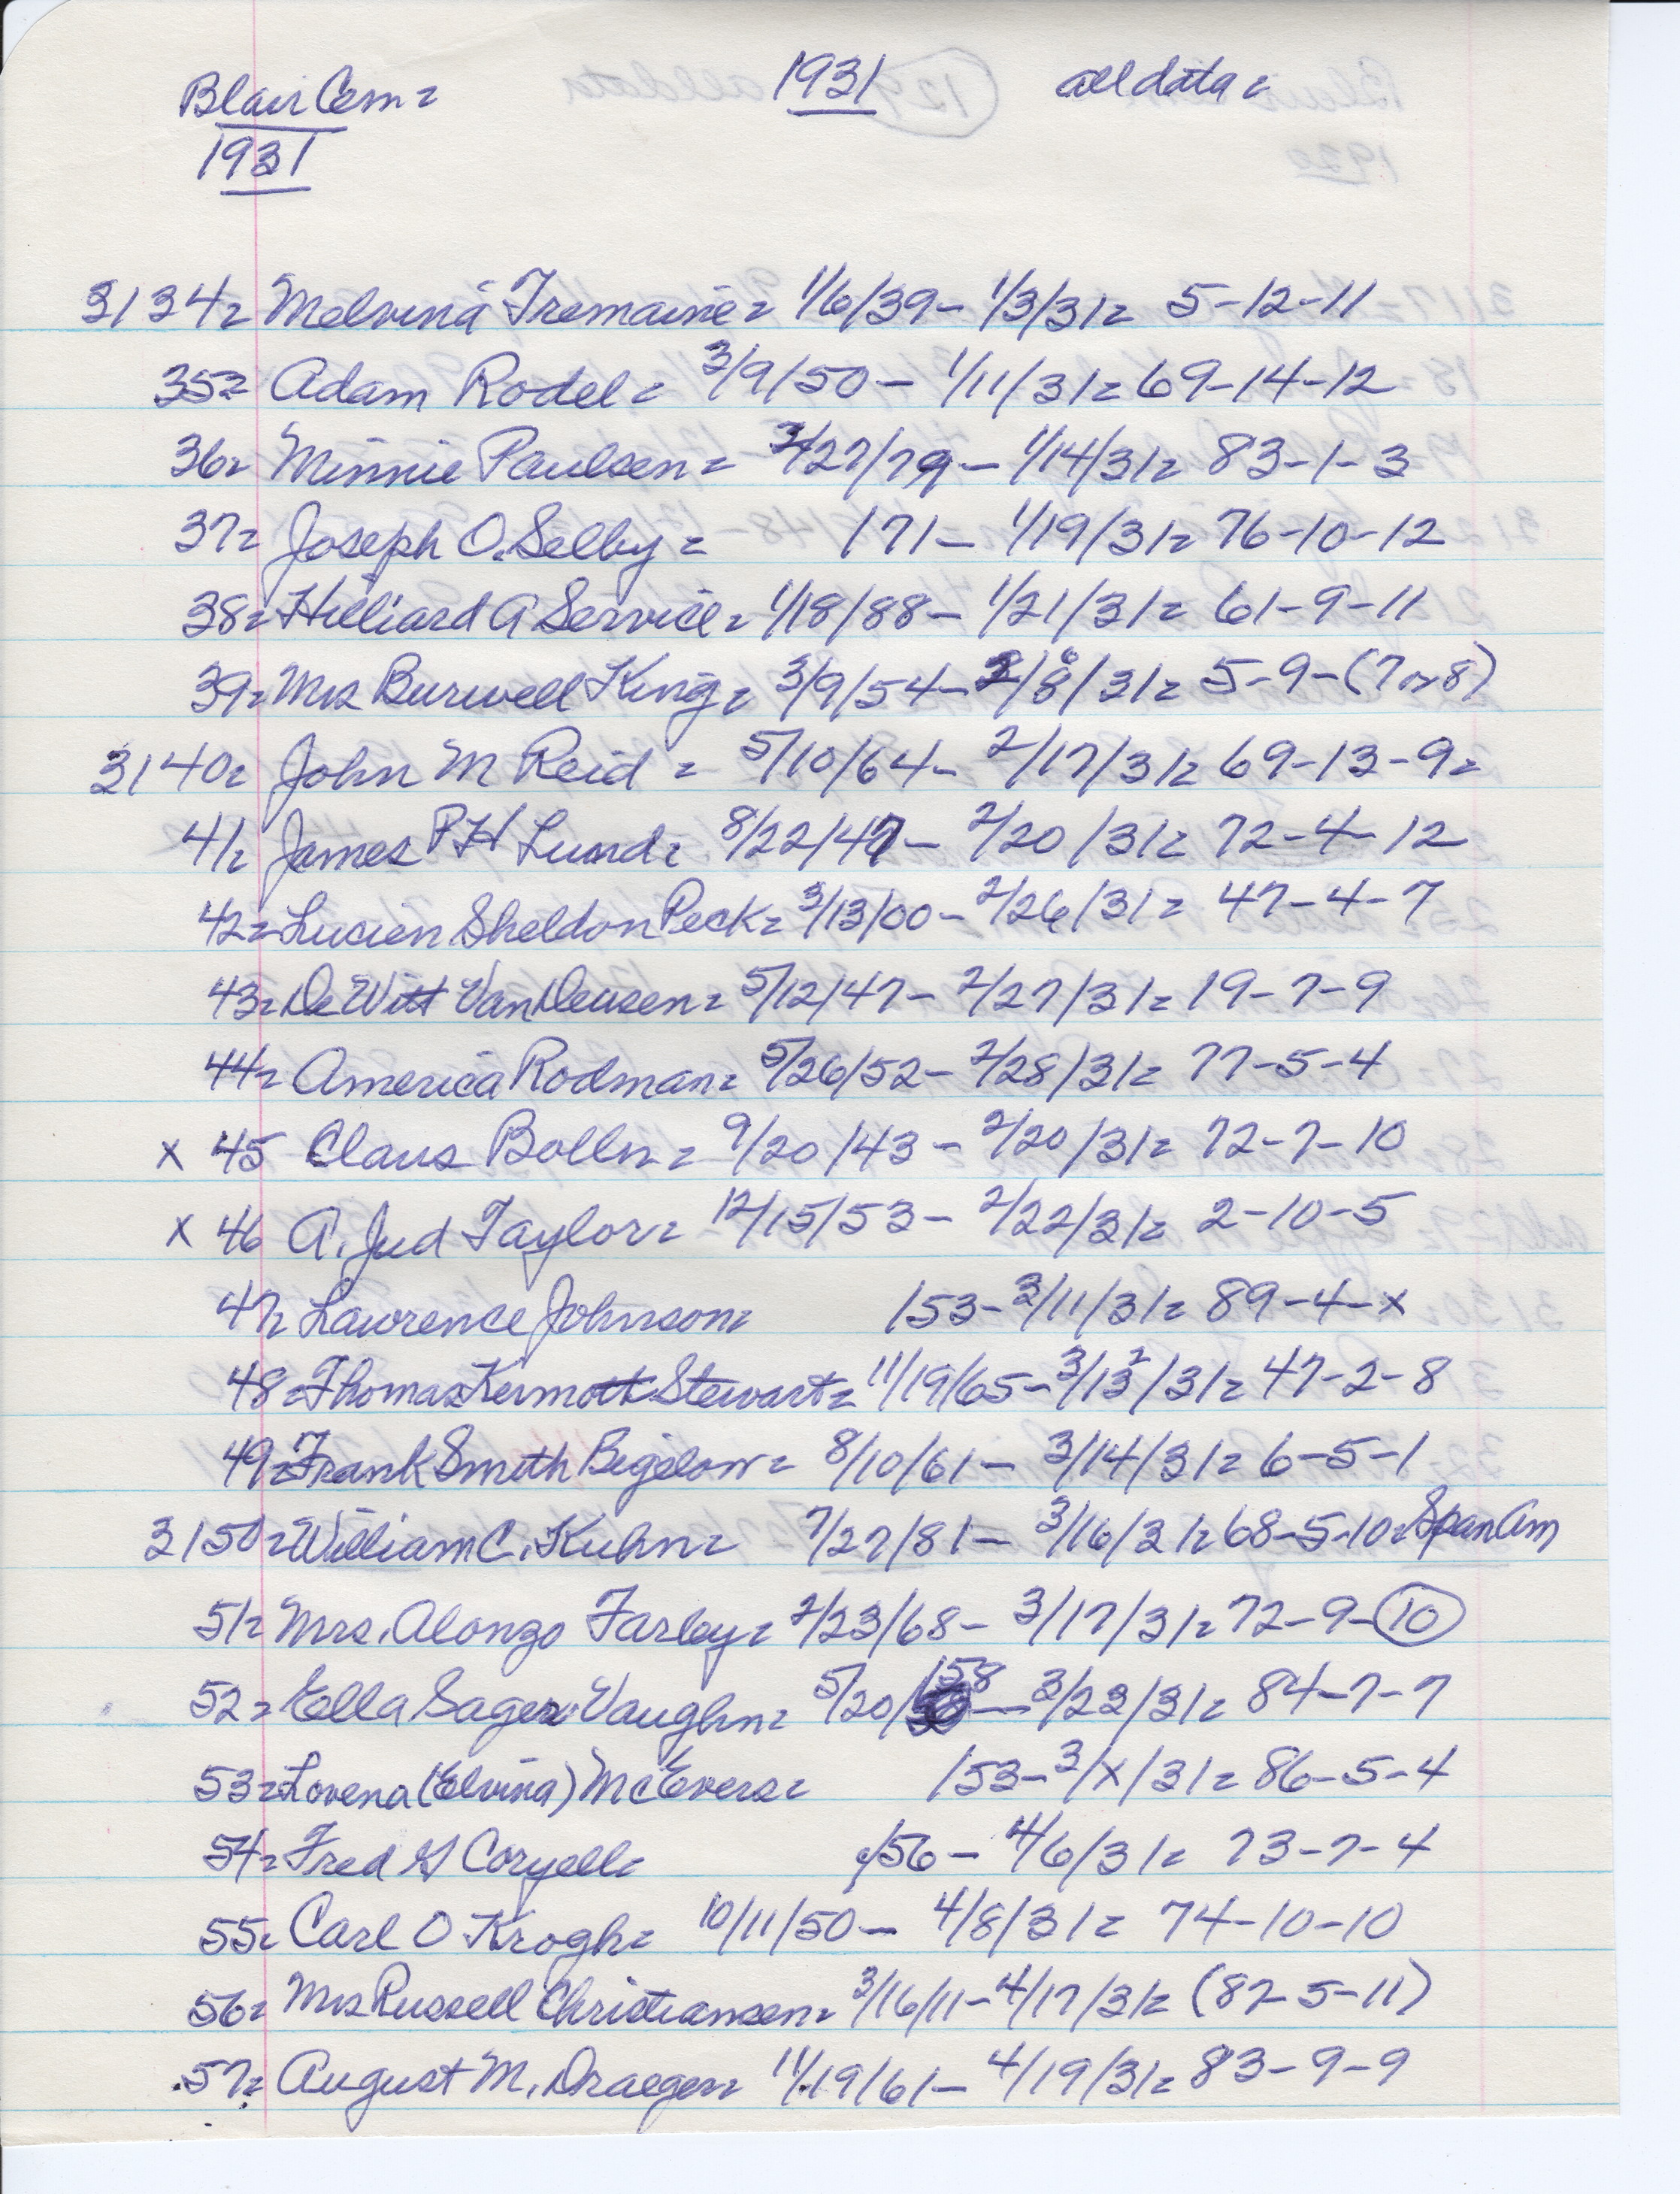 Blair Cem= 1931 all data=
1931
3134= Melvina Tremaine= 1/6/39- 1/3/31= 5-12-11
35= Adam Rodel= 3/9/50- 1/11/31= 69-14-12
36= Minnie Paulsen= 3/27/79- 1/14/31= 83-1-3
37= Joseph O. Selby= /71- 1/19/31= 76-10-12
38= Hilliard A Service= 1/18/88- 1/21/31= 61-9-11
39= Mrs Burwell King= 3/9/54- 2/8/31= 5-9-(7 or 8)
3140= John M Reid= 5/10/64- 2/17/31= 69-13-9=
41= James P H Lund= 8/22/47- 2/20/31= 72-4-12
42= Lucien Sheldon Peck= 3/13/00- 2/26/31= 47-4-7
43= De Witt VanDeusen= 5/12/47- 2/27/31= 19-7-9
44= America Rodman= 5/26/52- 2/28/31= 77-5-4
x 45 Claus Bolln= 9/20/43- 2/20/31= 72-7-10
x 46 A. Jud Taylor= 12/15/53- 2/22/31= 2-10-5
47= Lawrence Johnson= /53- 3/11/31= 89-4-x
48= Thomas Kermott Stewart= 11/19/65- 3/13 2/31= 47-2-8
49= Frank Smith Bigelow= 8/10/61- 3/14/31= 6-5-1
3150= William C. Kuhn= 7/27/81- 3/16/31= 68-5-10= Span Am
51= Mrs. Alonzo Farley= 2/23/68- 3/17/31= 72-9-10
52= Ella Sager Vaughn= 5/20/58- 3/23/31= 84-7-7
53= Lovena (Elvina) McEvers= /53- 3/x/31= 86-5-4
54= Fred G Coryell= /56- 4/6/31= 73-7-4
55= Carl O Krogh= 10/11/50- 4/8/31= 74-10-10
56= Mrs Russell Christiansen= 3/16/11- 4/17/31= (82-5-11)
57= August M. Draeger= 11/19/61- 4/19/31= 83-9-9